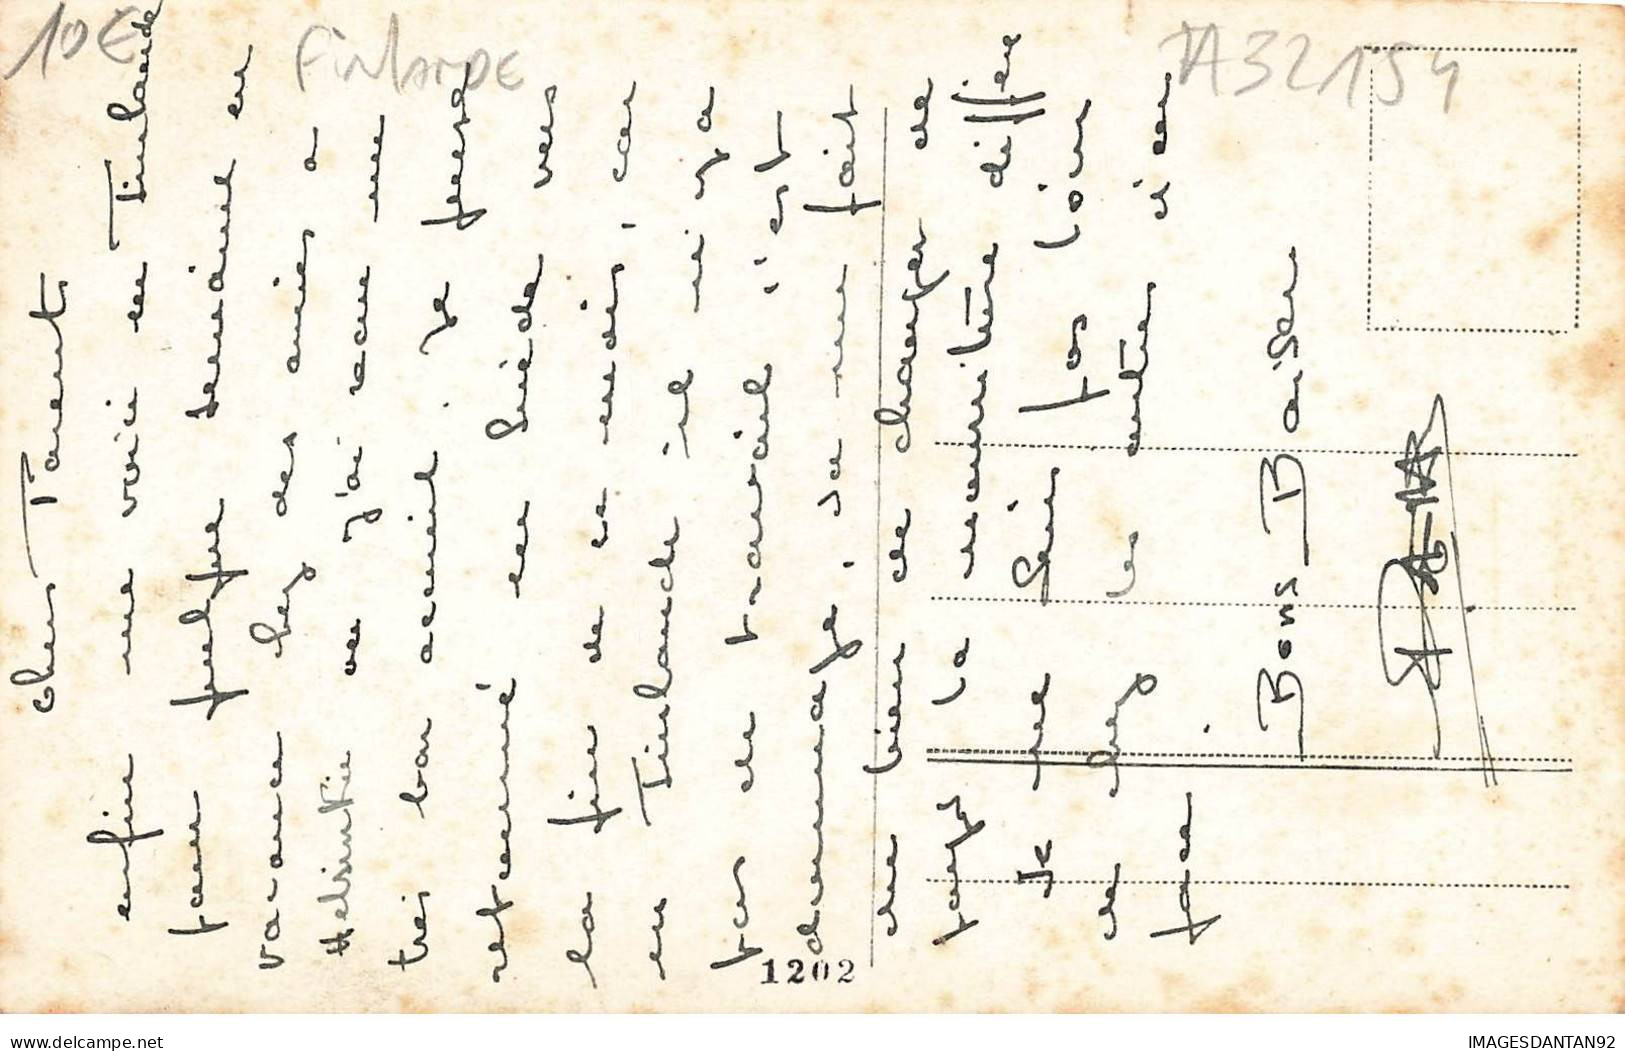 10€
Finlande
TA32154
chers Parents
enfin me voici en Finlande
pour quelque semaine en
vacance chez des amies a
Helsinkie ou j'ai recue une
tres bon acceuil. Je pense
retourné en Suède vers
la fin de ce mois, car
en Finlande il ni ya
pas de travail c'est
dommage, sa me fait
du bien de changer de
pays la nourriture différe
Je me Sui pas loin
de chez les
Bons Baiser
1202
https://www.delcampe.net
IMAGESDANTAN92